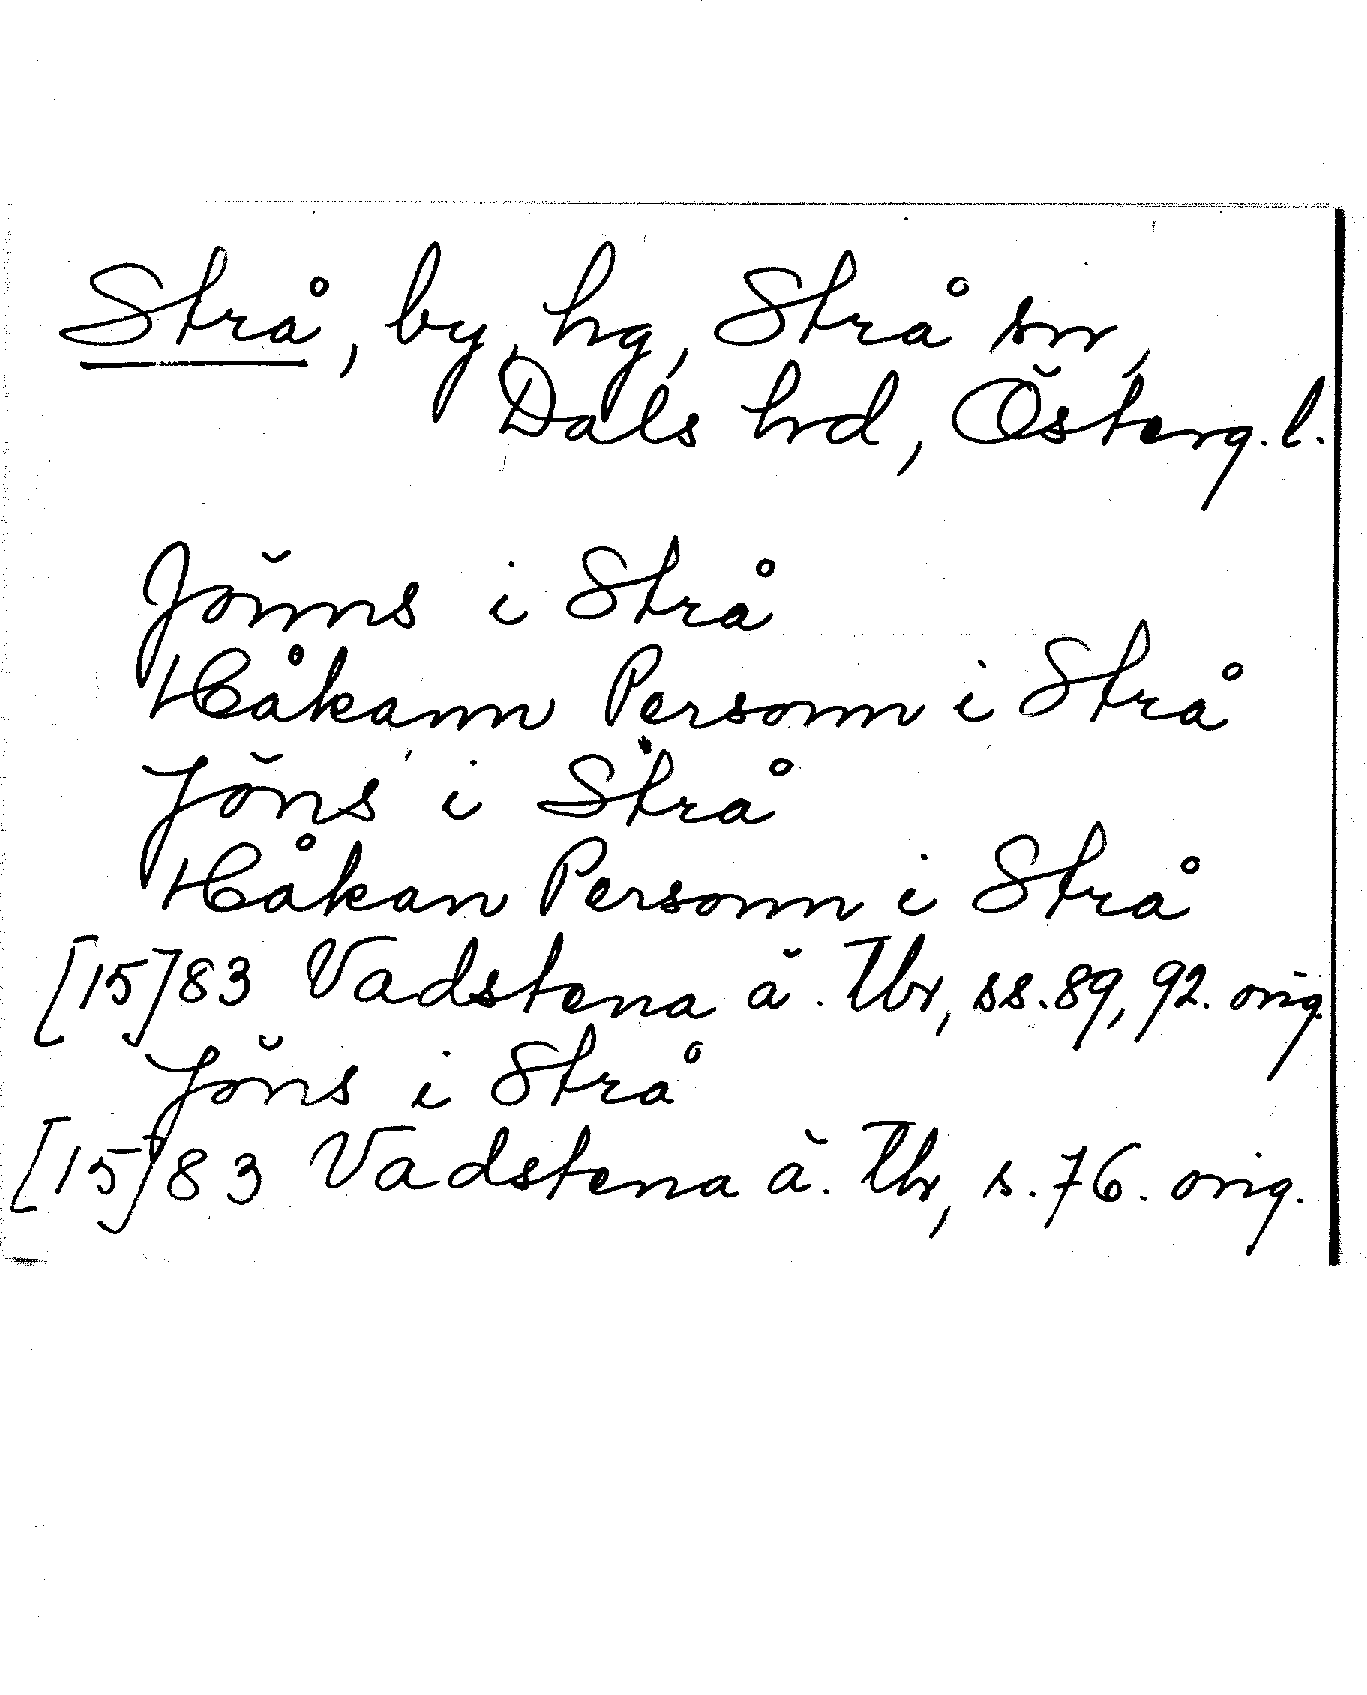 Strå, by, hg, Strå sn,
Dals hrd, Österg. l.
Jönns i Strå
Håkann Personn i Strå
Jöns i Strå
Håkan Personn i Strå
[15]83 Vadstena ä. Tbr, ss. 89, 92. orig.
Jöns i Strå
[15]83 Vadstena ä. Tbr, s. 76. orig.